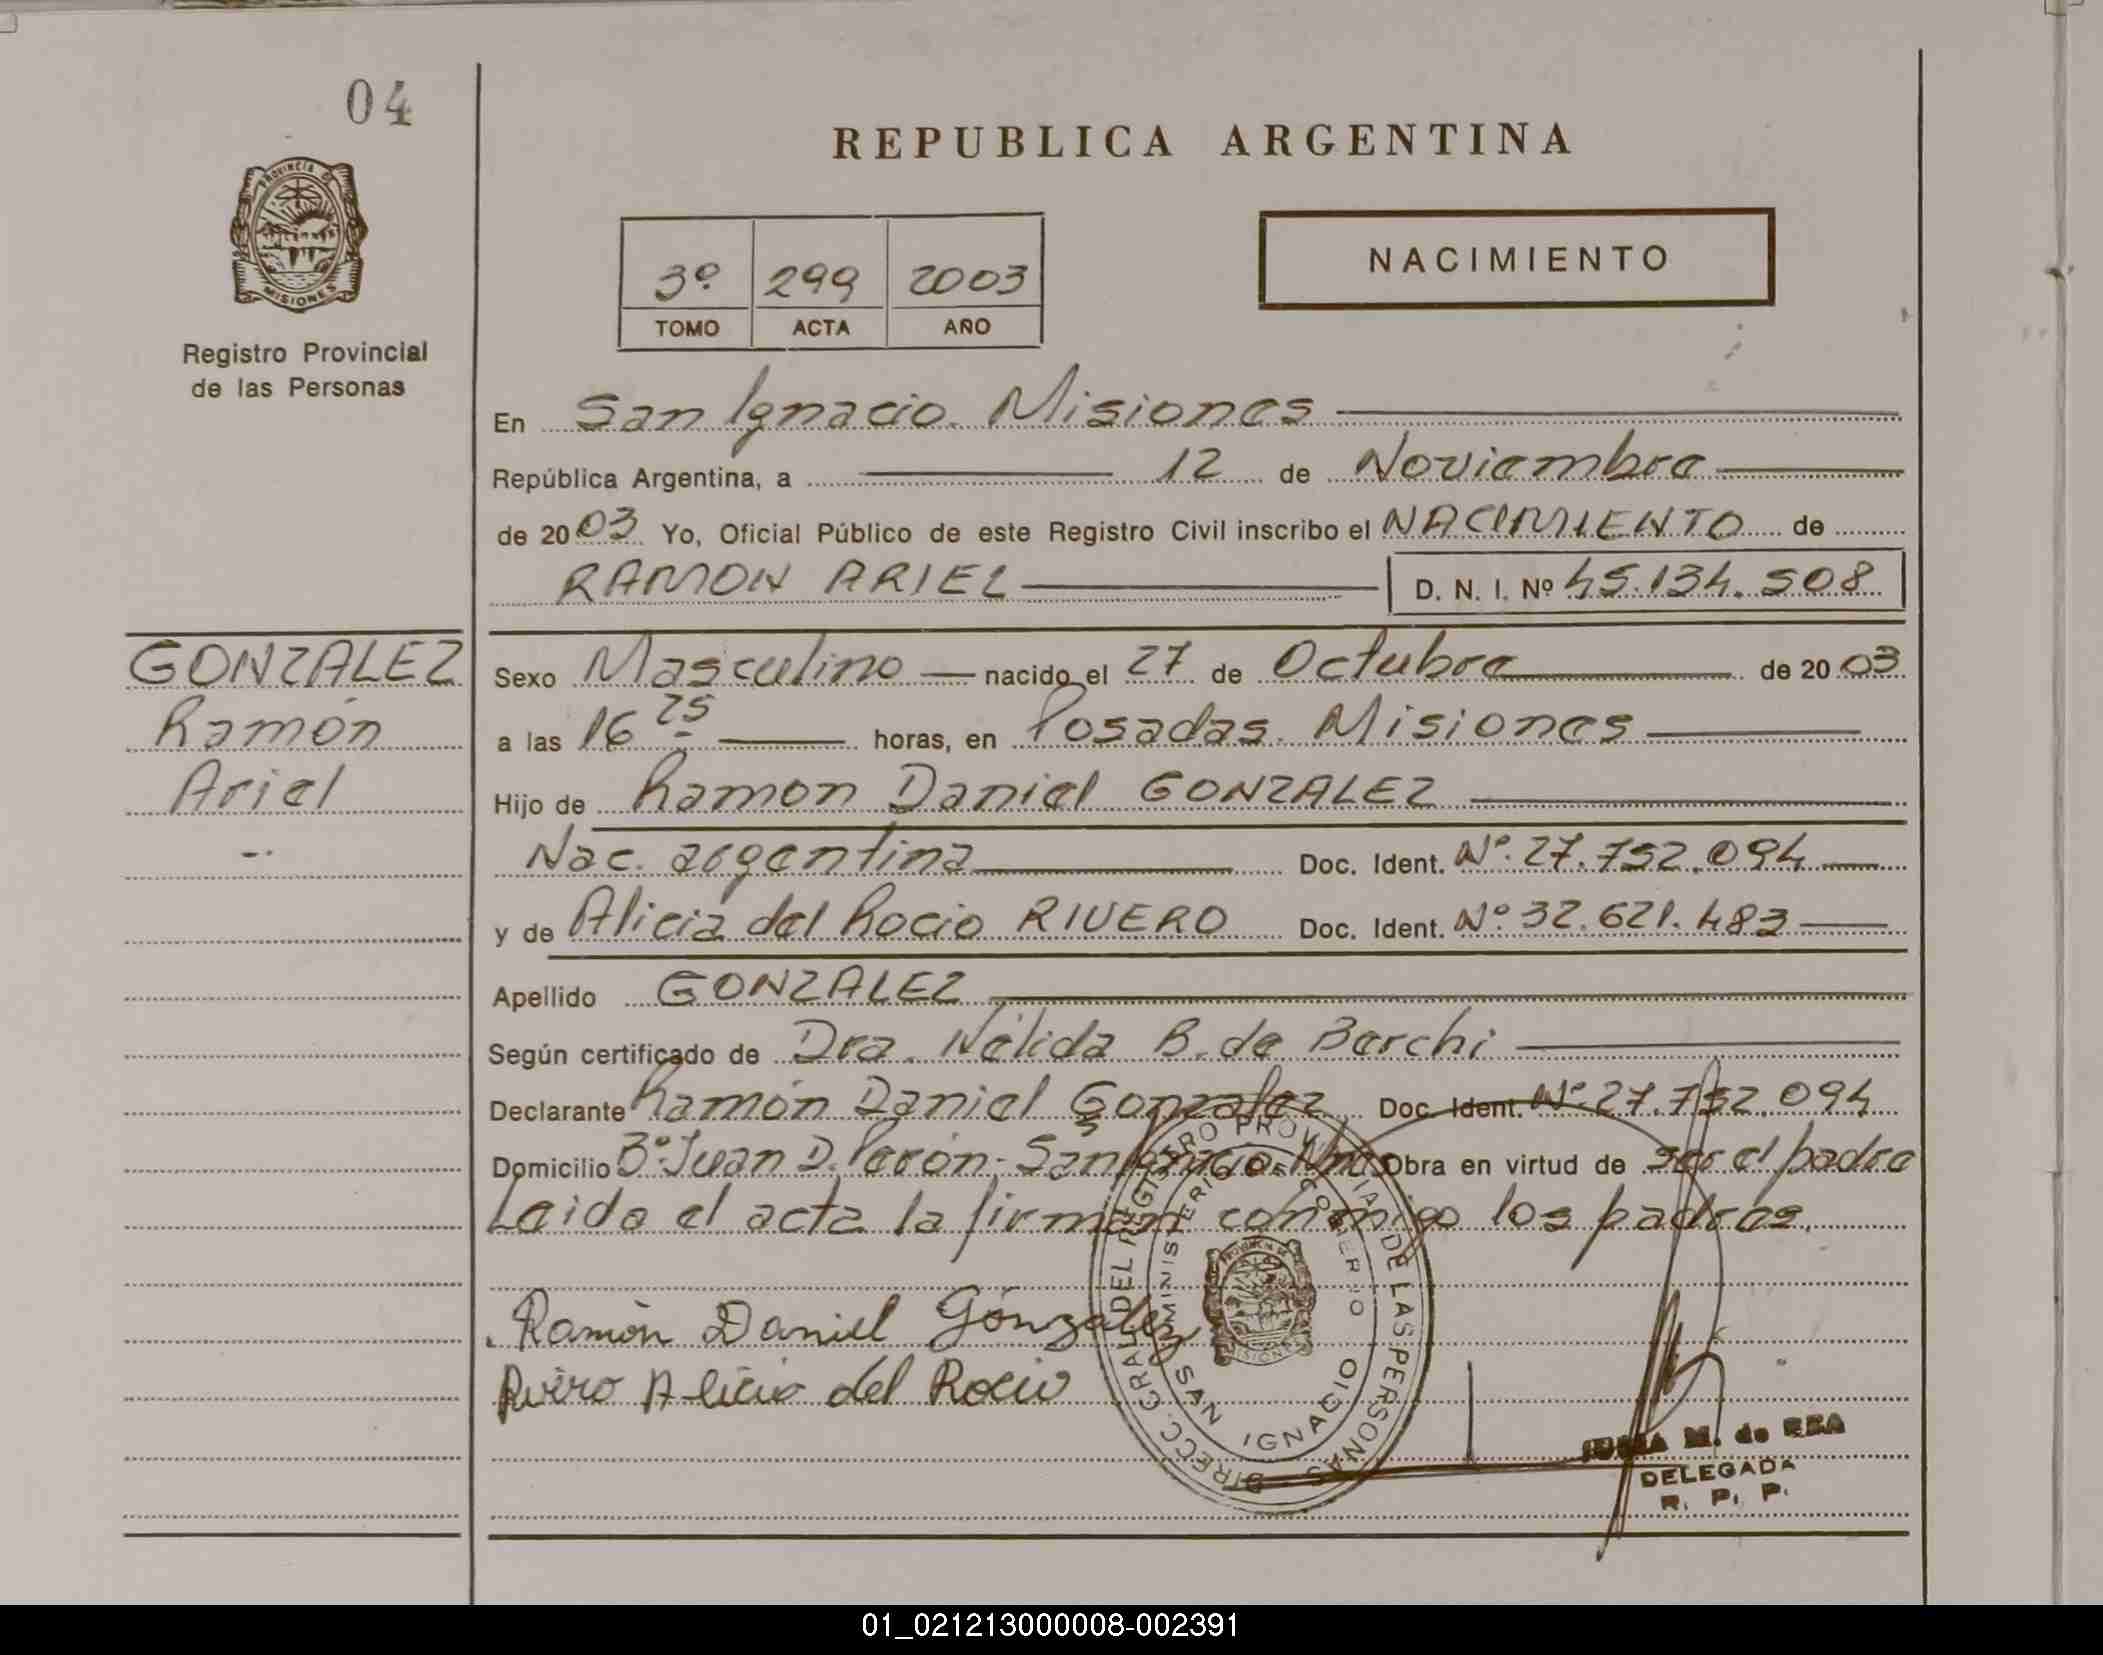 04
PROVINCIA DE
MISIONES
Registro Provincial
de las Personas
REPUBLICA ARGENTINA
3º 299 2003
TOMO ACTA AÑO
NACIMIENTO
En San Ignacio. Misiones
República Argentina, a 12 de Noviembre
de 2003 Yo, Oficial Público de este Registro Civil inscribo el NACIMIENTO de
RAMON ARIEL D. N. I. Nº 45.134.508
GONZALEZ
Ramón
Ariel
Sexo Masculino nacido el 27 de Octubre de 2003
a las 16 25 horas, en Posadas. Misiones
Hijo de Ramon Daniel GONZALEZ
Nac. argentina Doc. Ident. Nº.27.752.094
y de Alicia del Rocio RIVERO Doc. Ident. Nº.32.621.483
Apellido GONZALEZ
Según certificado de Dra. Nélida B. de Berchi
Declarante Ramón Daniel Gonzalez Doc. Ident. Nº.27.752.094
Domicilio Bº.Juan D. Perón- San Ignacio Mnes Obra en virtud de ser el padre
Leida el acta la firman conmigo los padres.
Ramón Daniel Gónzalez
Rivero Alicia del Rocio
DIRECC. GRAL. DEL REGISTRO PROVINCIAL DE LAS PERSONAS
MINISTERIO DE GOBIERNO
SAN IGNACIO
PROVINCIA DE
MISIONES
M. de REA
DELEGADA
R. P. P.
01_021213000008-002391